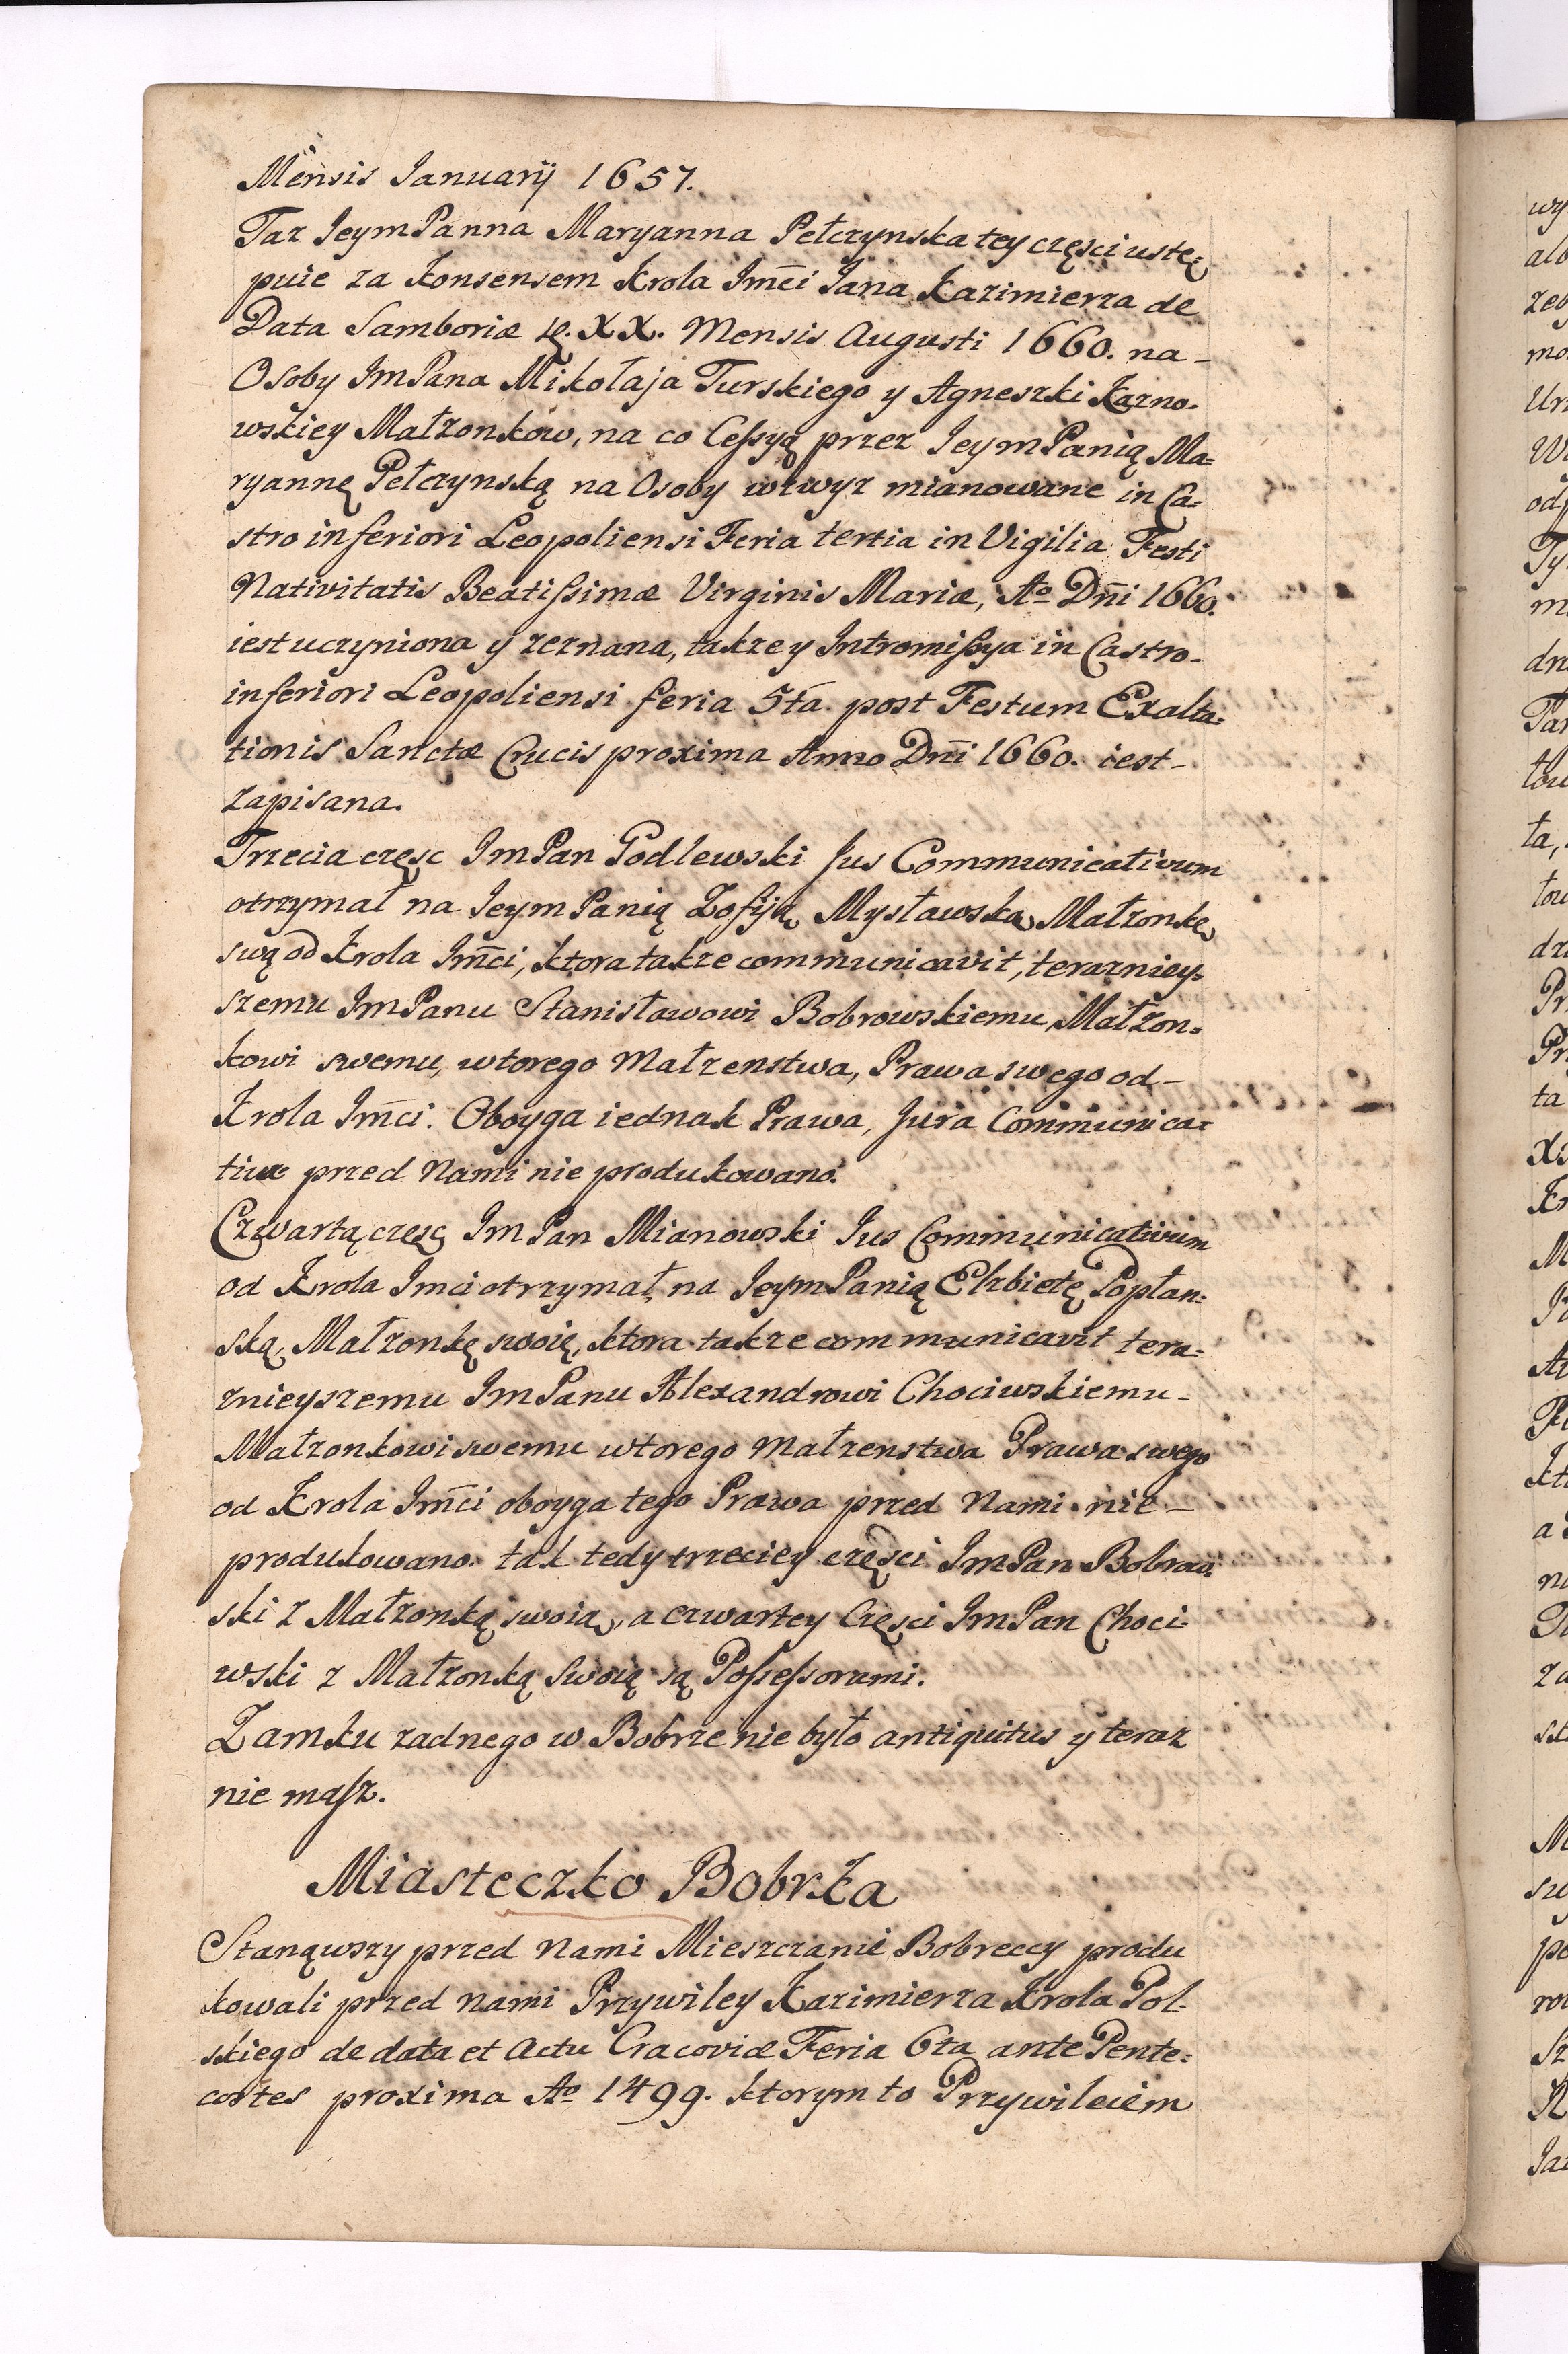 Mensis Januarij 1657.
Taz Jeym Panna Maryanna Pełczynska tey częsci ustę=
puie za Konsensem Krola Jmci Jana Kazimierza de
Data Samboriæ XX. Mensis Augusti 1660. na –
Osoby Jm Pana Mikołaja Turskiego y Agneszki Karno=
wskiey Małzonkow, na co Cessyą przez Jeym Panią Ma=
ryannę Pełczynską na Osoby wzwyz mianowane in Ca=
stro inferiori Leopoliensi Feria tertia in Vigilia Festi
Nativitatis Beatissimæ Virginis Mariæ, Ao Dni 1660.
iest uczyniona y zeznana, takze y Intromissya in Castro –
inferiori Leopoliensi feria 5ta post Festum Exalta=
tionis Sanctæ Crucis proxima Anno Dni 1660. iest –
zapisana.
Trzecia częsc Jm Pan Podlewski Jus Communicativum
otrzymał na Jeym Panią Zofiją Mysławską Małzonkę
swą od Krola Jmci, ktora takze communicavit, terazniey=
szemu Jm Panu Stanisławowi Bobrowskiemu Małzon=
kowi swemu, wtorego Małzenstwa, Prawa swego od –
Krola Jmci. Oboyga iednak Prawa, Jura Communica=
tiva przed Nami nie produkowano.
Czwartą częsc Jm Pan Mianowski Jus Communicativum
od Krola Jmci otrzymał, na Jeym Panią Elzbietę Popłan=
ską, Małzonkę swoię, ktora takze communicavit tera=
znieyszemu Jm Panu Alexandrowi Chociwskiemu –
Małzonkowi swemu wtorego Małzenstwa Prawa swego
od Krola Jmci oboyga tego Prawa przed Nami nie –
produkowano. tak tedy trzeciey częsci Jm Pan Bobrow=
ski z Małzonką swoią, a czwartey Częsci Jm Pan Choci=
wski z Małzonką Swoią są Possessorami.
Zamku zadnego w Bobrze nie było antiquitus y teraz
nie masz.
Miasteczko Bobrka
Stanąwszy przed Nami Mieszczanie Bobreccy produ
kowali przed nami Przywiley Kazimierza Krola Pol=
skiego de data et Actu Cracoviæ Feria 6ta ante Pente=
costes proxima Ao 1499. ktorym to Przywileiem